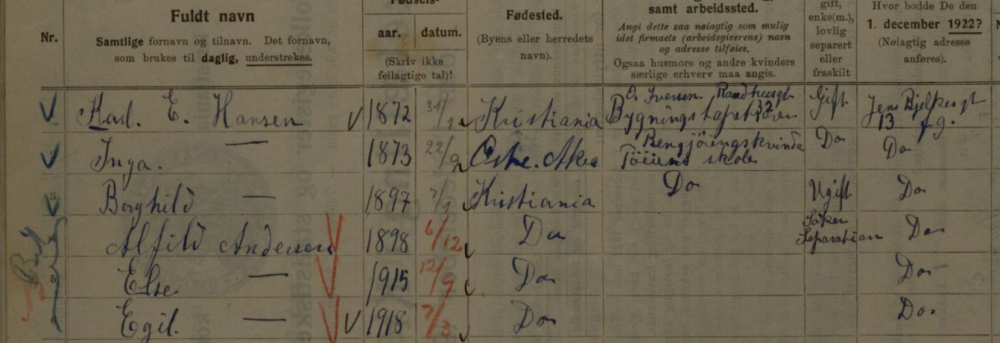 Nr.
Fuldt navn
Samtlige fornavn og tilnavn. Det fornavn,
som brukes til daglig, understrekes.
Fødsels-
aar. datum.
(Skriv ikke
feilagtige tal)!
Fødested.
(Byens eller herredets
navn).
samt arbeidssted.
Angi dette saa nøiagtig som mulig
idet firmaets (arbeidsgiverens) navn
og adresse tilføies.
Ogsaa husmors og andre kvinders
særlige erhverv maa angis.
gift,
enke(m.),
lovlig
separert
eller
fraskilt
Hvor bodde De den
1. december 1922?
(Nøiagtig adresse
anføres).
Karl. E. Hansen 1872 Kristiania O. Iversen. Raadhusgt 32 Gift Jens Bjelkesgt
13
Inga. — 1873 22/9 Aker Rengjøringskvinde Do Do
Tøiens skole
Borghild — 1897 Kristiania Do Ugift Do
Alfild Andersen 1898 6/12 Do Søker Do
Separation
Else — 1915 12/9 Do Do
Egil. — 1918 7/3 Do Do